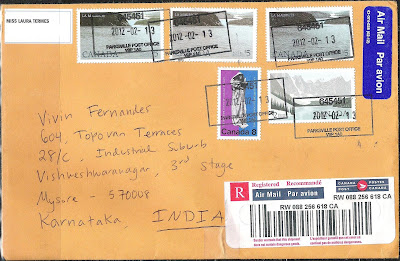 MISS LAURA TERMES
CANADA
5
CANADA
5
Air Mail
Par avion
645451
2012-02-13
PARKSVILLE POST OFFICE
V9P 1A0
645451
2012-02-13
PARKSVILLE POST OFFICE
645451
2012-02-13
Canada 8
645451
2012-02-13
PARKSVILLE POST OFFICE
Vivin Fernandes
604, Topovan Terraces
28/c, Industrial Suburb
Vishweshwaranagar, 3rd Stage
Mysore 570008
Karnataka, INDIA
R Registered Recommandé
Air Mail Par avion
CANADA POSTES
POST CANADA
RW 088 256 618 CA
RW 088 256 618 CA